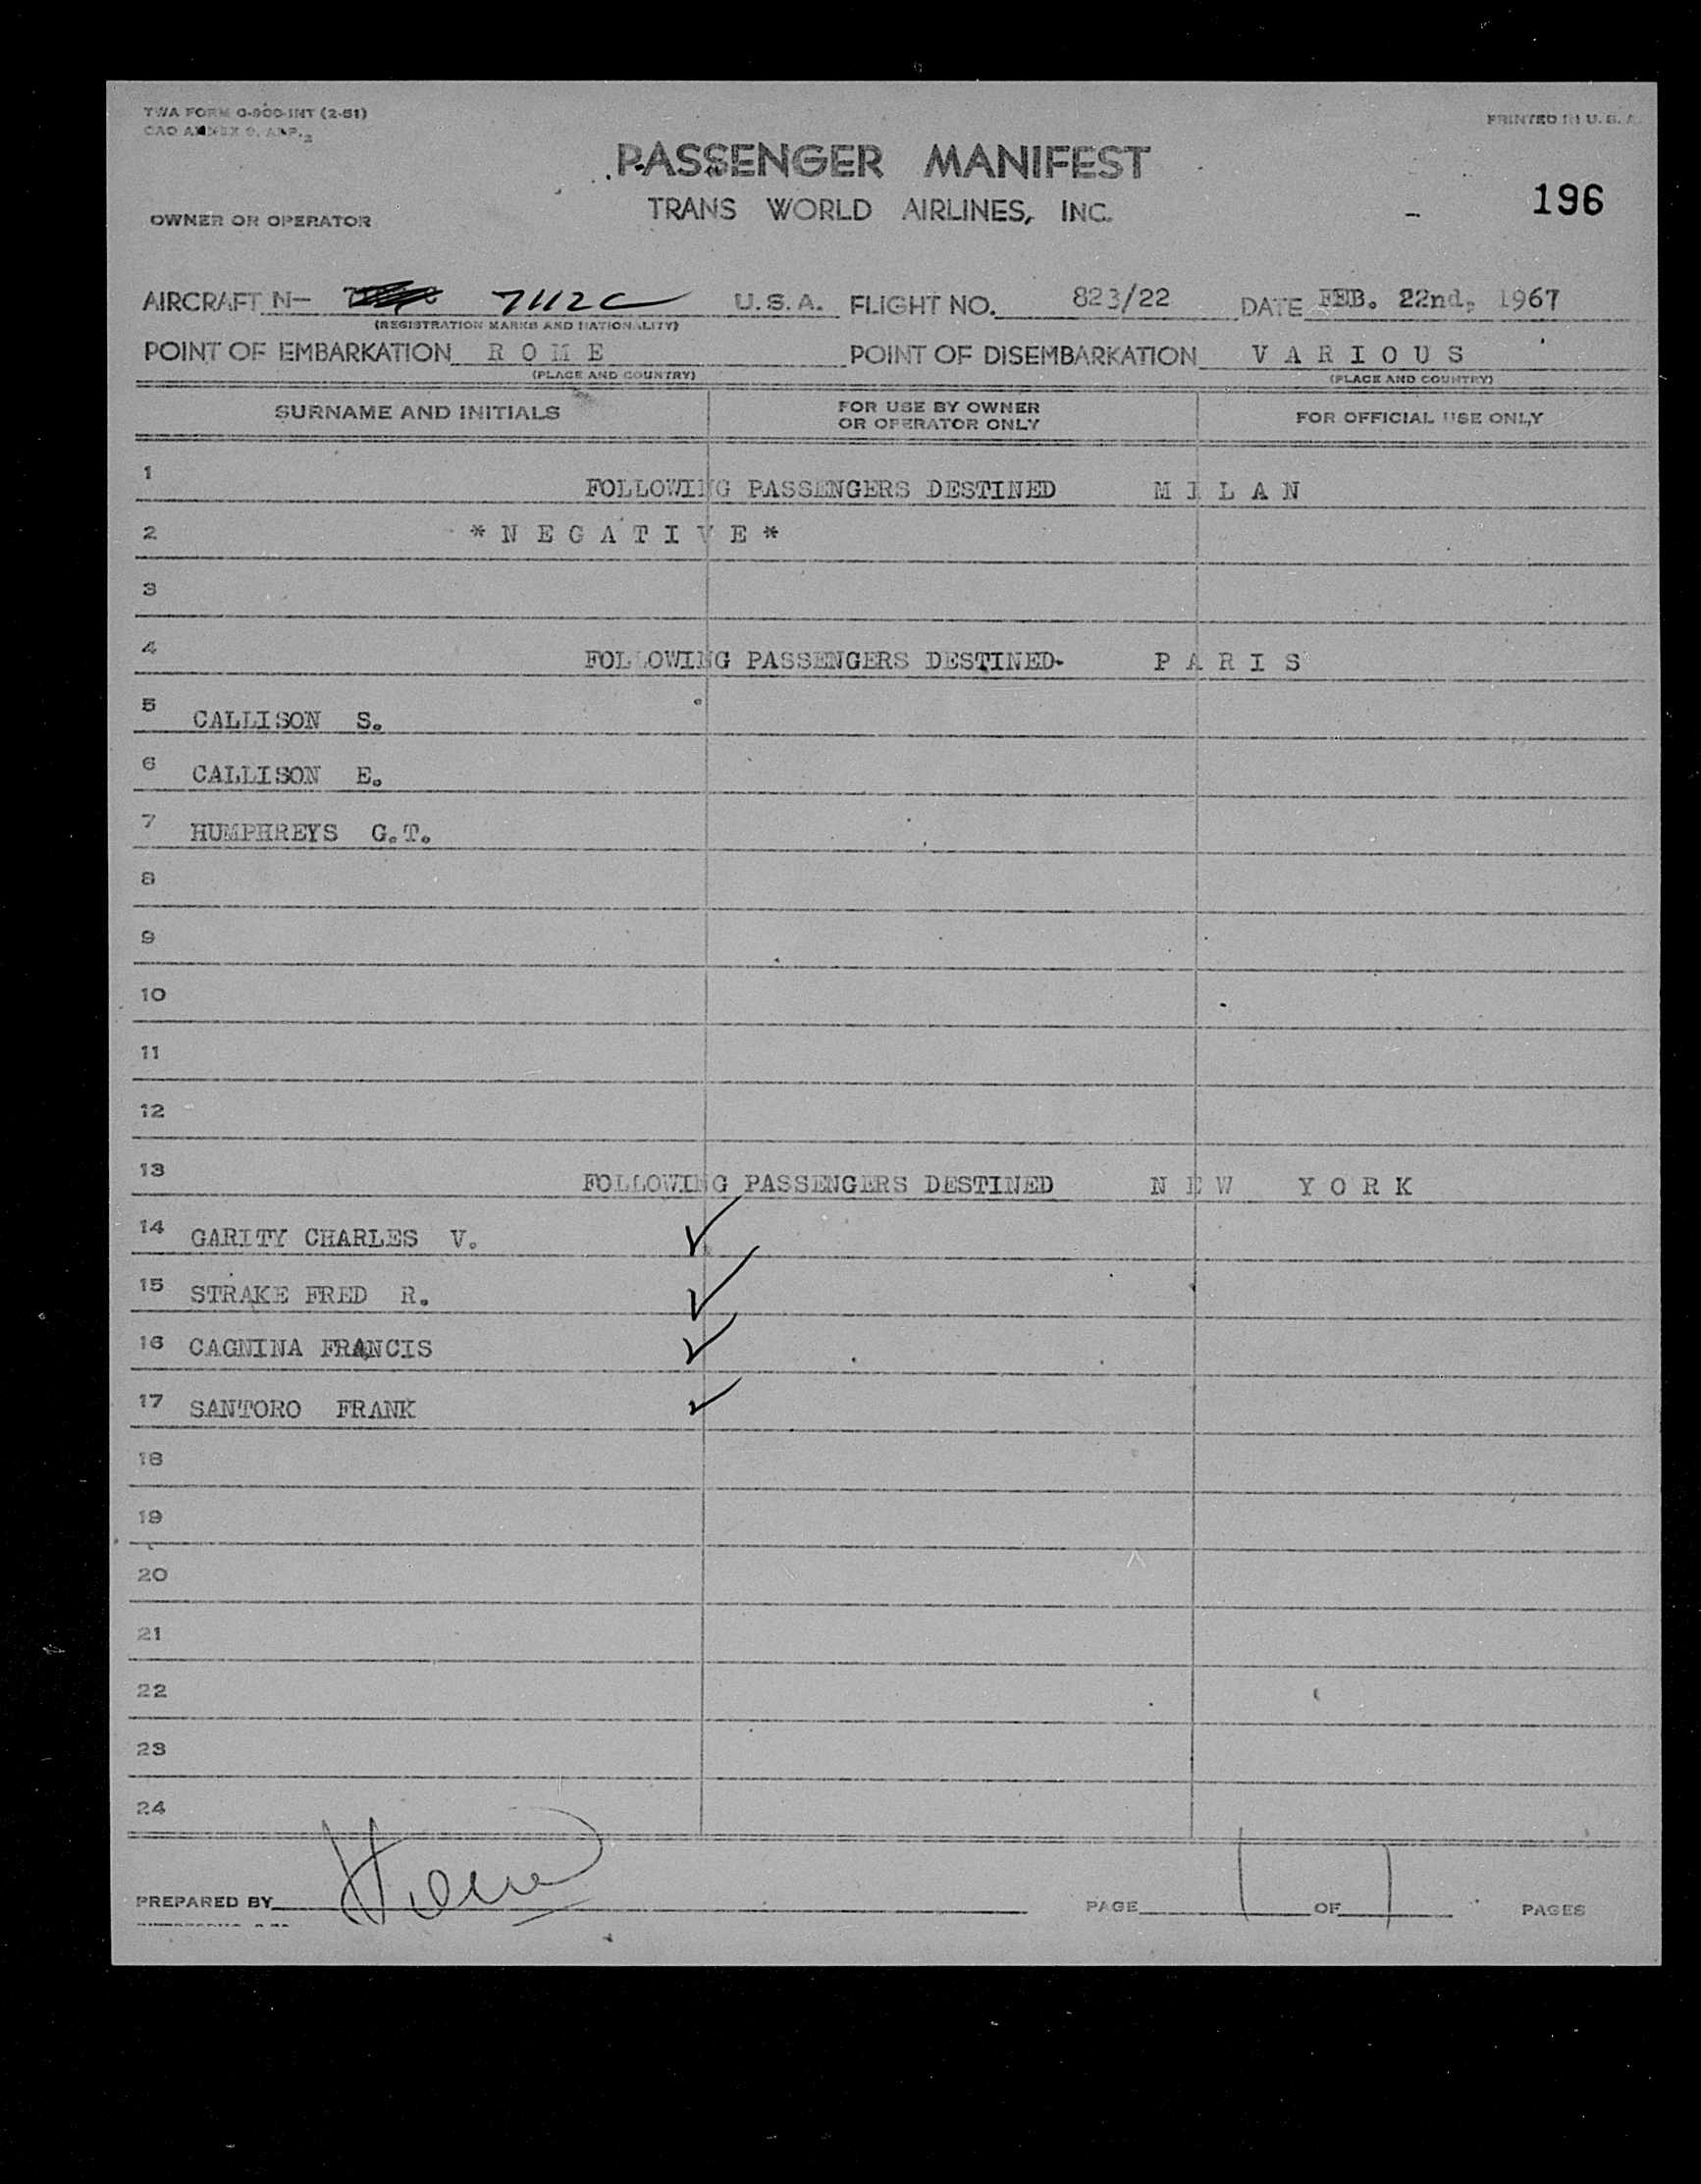 TWA FORM O-900-INT (2-51)
PRINTED IN U. S. A.
PASSENGER MANIFEST
196
TRANS WORLD AIRLINES, INC.
OWNER OR OPERATOR
AIRCRAFT N- 7112C U.S.A. FLIGHT NO. 823/22 DATE FEB. 22nd, 1967
(REGISTRATION MARKS AND NATIONALITY)
POINT OF EMBARKATION R O M E POINT OF DISEMBARKATION V A R I O U S
(PLACE AND COUNTRY) (PLACE AND COUNTRY)
SURNAME AND INITIALS FOR USE BY OWNER OR OPERATOR ONLY FOR OFFICIAL USE ONLY
1 FOLLOWING PASSENGERS DESTINED M I L A N
2 *N E G A T I V E*
3
4 FOLLOWING PASSENGERS DESTINED- P A R I S
5 CALLISON S.
6 CALLISON E.
7 HUMPHREYS G.T.
8
9
10
11
12
13 FOLLOWING PASSENGERS DESTINED N E W Y O R K
14 GARITY CHARLES V. ✓
15 STRAKE FRED R. ✓
16 CAGNINA FRANCIS ✓
17 SANTORO FRANK ✓
18
19
20
21
22
23
24
PREPARED BY PAGE 1 OF 1 PAGES